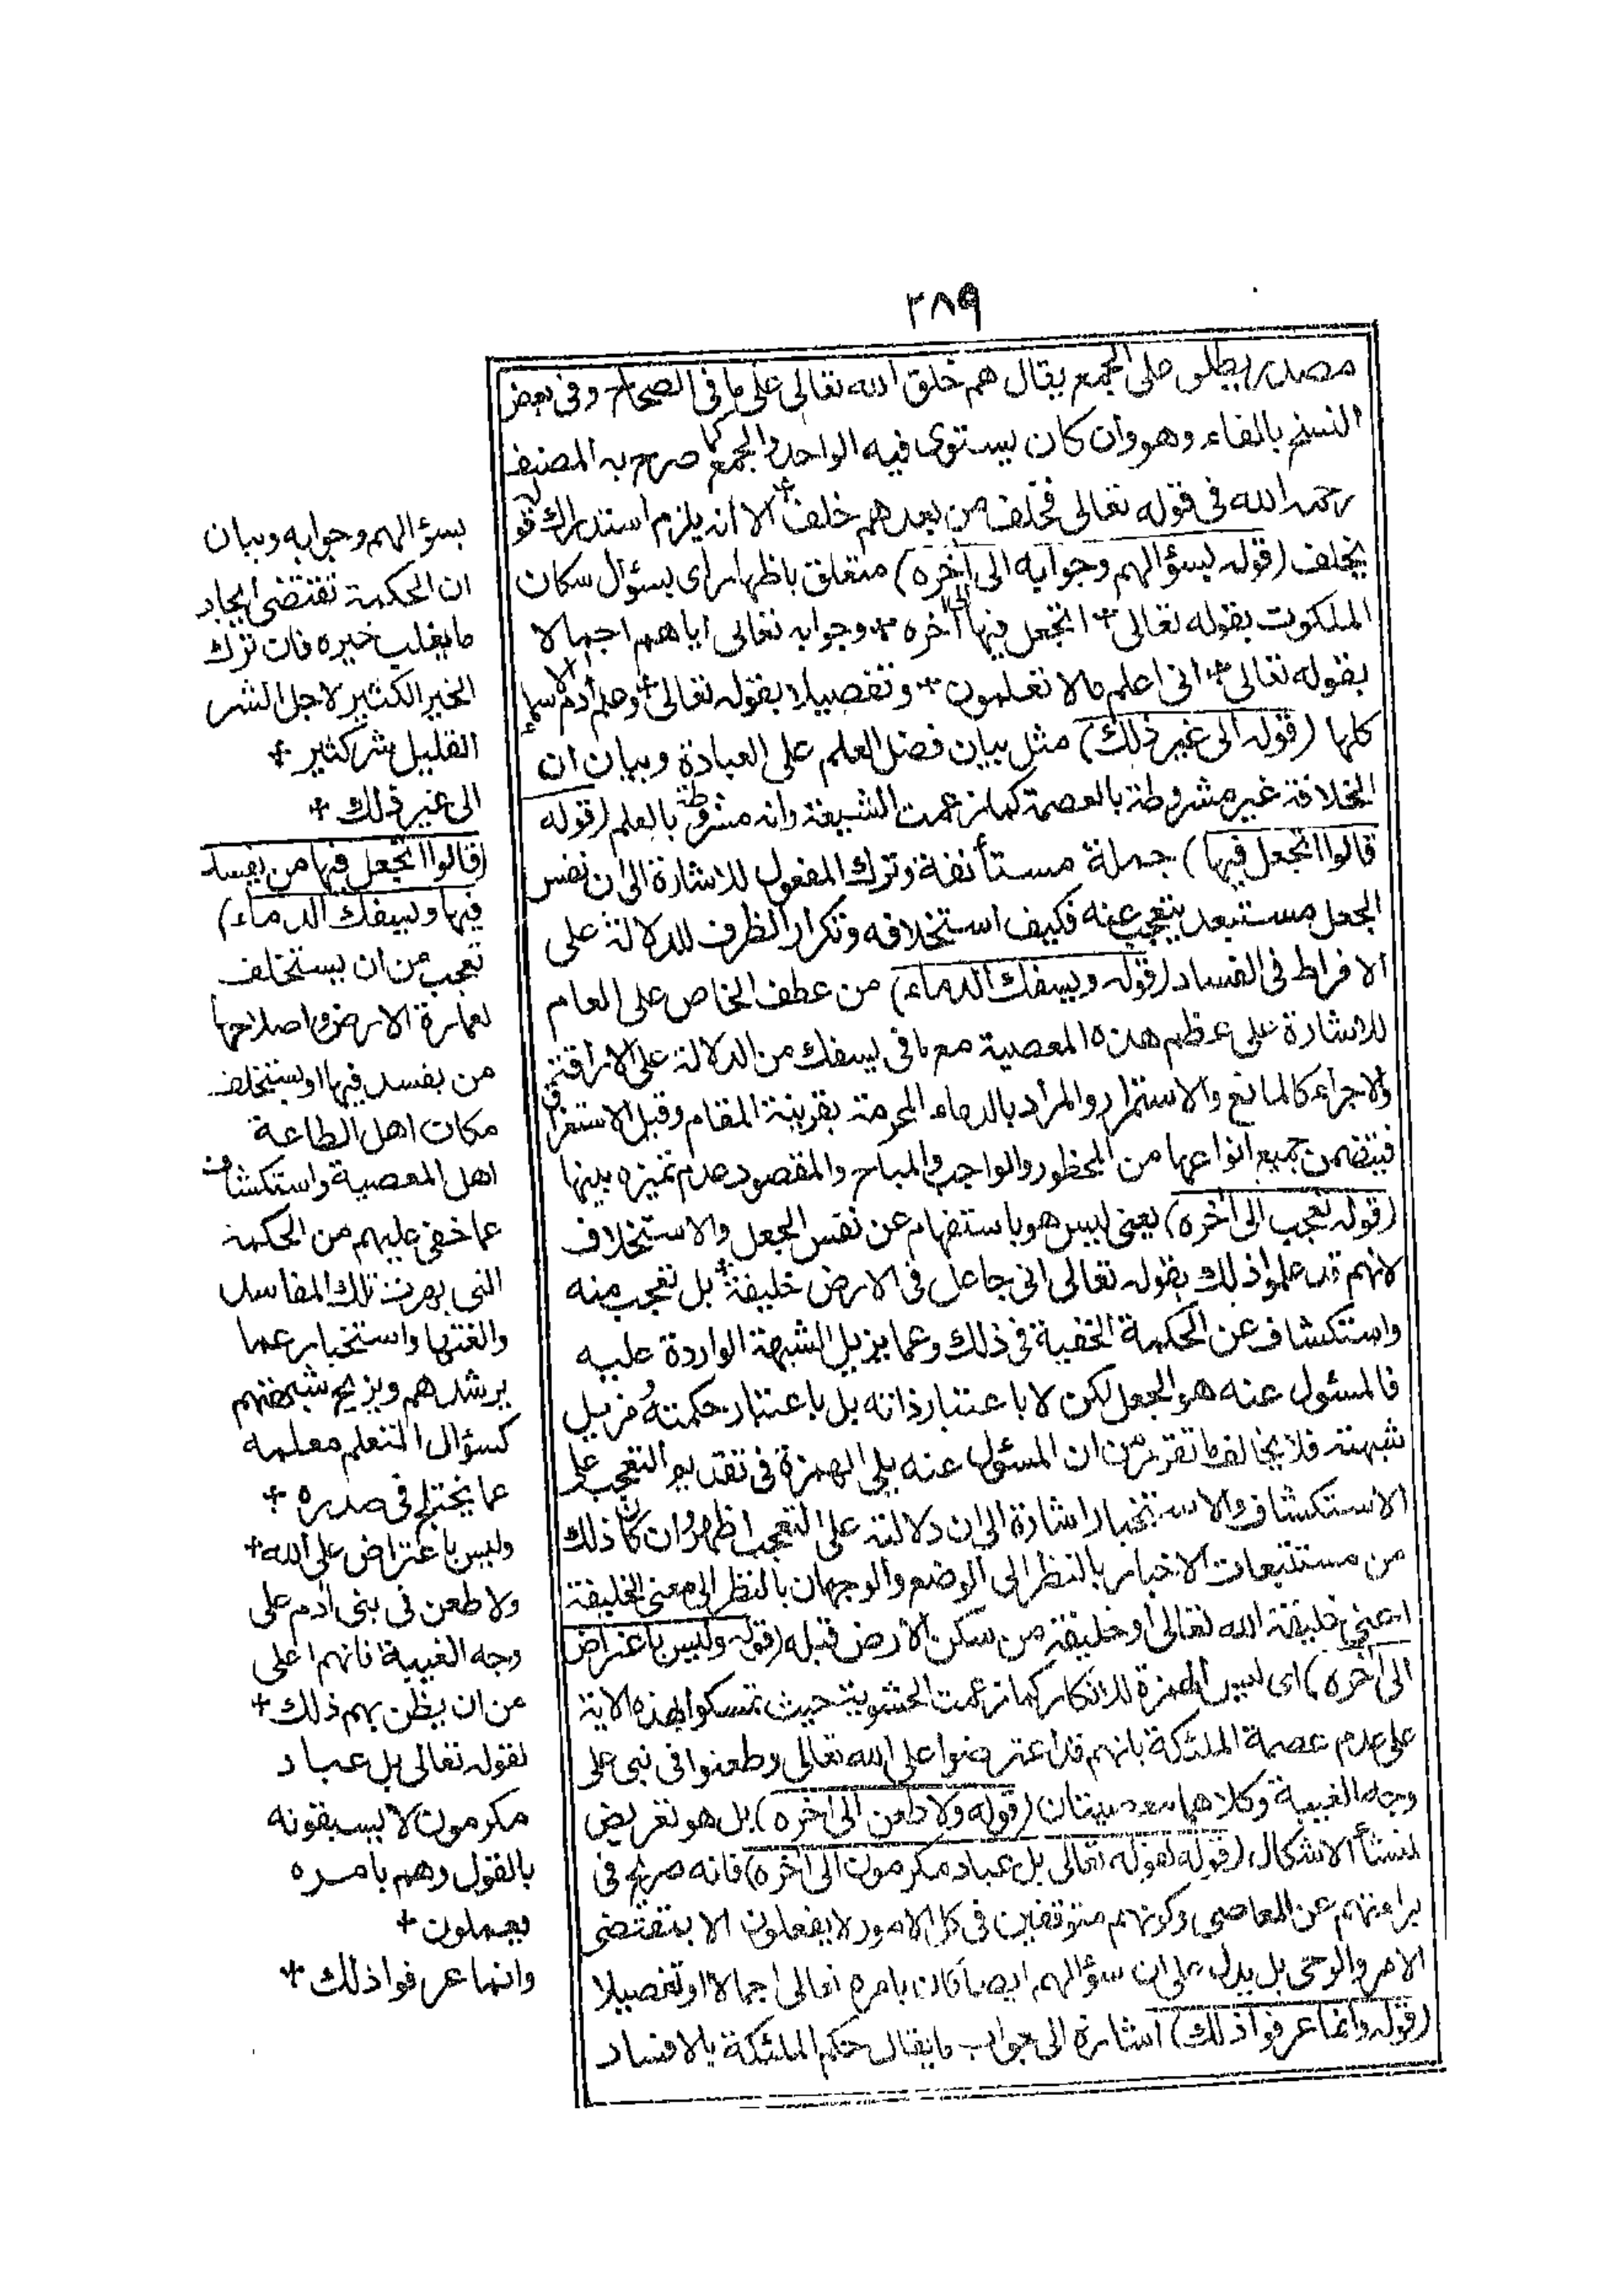 ٢٨٩
مصدر يطلق على الجمع يقال هم خلق الله تعالى على ما فى الصحاح وفى بعض
النسخ بالفاء وهو وان كان يستوى فيه الواحد والجمع كما صرح به المصنف
رحمه الله فى قوله تعالى فخلف من بعدهم خلف + الا انه يلزم استدراك قو
يخلف (قوله بسؤالهم وجوابه الى آخره) متعلق باظهار اى بسؤال سكان
الملكوت بقوله تعالى + اتجعل فيها الى آخره + وجوابه تعالى اياهم اجمالا
بقوله تعالى + انى اعلم مالا تعلمون + وتفصيلا بقوله تعالى + وعلم آدم الاسماء
كلها (قوله الى غير ذلك) مثل بيان فضل العلم على العبادة وبيان ان
الخلافة غير مشروطة بالعصمة كما زعمت الشيعة وانه مشروطة بالعلم (قوله
قالوا اتجعل فيها) جملة مستأنفة وترك المفعول للاشارة الى ان نفس
الجعل مستبعد يتعجب عنه فكيف استخلافه وتكرار الظرف للدلالة على
الافراط فى الفساد (قوله ويسفك الدماء) من عطف الخاص على العام
للاشارة على عظم هذه المعصية مع ما فى يسفك من الدلالة على الاراقة
والاجراء كالمائع والاستمرار والمراد بالدماء المحرمة بقرينة المقام وقيل الاستغراق
فيتضمن جميع انواعها من المحظور والواجب والمباح والمقصود عدم تميزه بينها
(قوله تعجب الى آخره) يعنى ليس هو باستفهام عن نفس الجعل والاستخلاف
لانهم قد علموا ذلك بقوله تعالى انى جاعل فى الارض خليفة + بل تعجب منه
واستكشاف عن الحكمة الخفية فى ذلك وعما يزيل الشبهة الواردة عليه
فالمسئول عنه هو الجعل لكن لا باعتبار ذاته بل باعتبار حكمته ومزيل
شبهته فلا يخالف ما تقرر من ان المسئول عنه يلى الهمزة فى تقديم التعجب على
الاستكشاف والاستخبار اشارة الى ان دلالته على التعجب اظهر وان كان ذلك
من مستتبعات الاخبار بالنظر الى الوضع والوجهان بالنظر الى معنى الخليفة
اعنى خليفة الله تعالى او خليفة من سكن الارض قبله (قوله وليس باعتراض
الى آخره) اى ليس الهمزة للانكار كما زعمت الحشوية حيث تمسكوا بهذه الآية
على عدم عصمة الملئكة بانهم قد اعترضوا على الله تعالى وطعنوا فى نبى على
وجه الغيبة وكلاهما معصيتان (قوله ولا طعن الى آخره) بل هو تعريض
لمنشأ الاشكال (قوله لقوله تعالى بل عباد مكرمون الى آخره) فانه صريح فى
براءتهم عن المعاصى وكونهم متوقفين فى كل الامور لا يفعلون الا بمقتضى
الامر والوحى بل يدل على ان سؤالهم ايضا كان بامره تعالى اجمالا او تفصيلا
(قوله وانما عرفوا ذلك) اشارة الى جواب ما يقال حكم الملئكة بالافساد
بسؤالهم وجوابه وبيان
ان الحكمة تقتضى ايجاد
ما يغلب خيره فان ترك
الخير الكثير لاجل الشر
القليل شر كثير +
الى غير ذلك +
(قالوا اتجعل فيها من يفسد
فيها ويسفك الدماء)
تعجب من ان يستخلف
لعمارة الارض واصلاحها
من يفسد فيها او يستخلف
مكان اهل الطاعة
اهل المعصية واستكشاف
عما خفى عليهم من الحكمة
التى بهرت تلك المفاسد
والغتها واستخبار عما
يرشدهم ويزيح شبهتهم
كسؤال المتعلم معلمه
عما يختلج فى صدره +
وليس باعتراض على الله +
ولا طعن فى بنى آدم على
وجه الغيبة فانهم اعلى
من ان يظن بهم ذلك +
لقوله تعالى بل عباد
مكرمون لا يسبقونه
بالقول وهم بامره
يعملون +
وانما عرفوا ذلك +